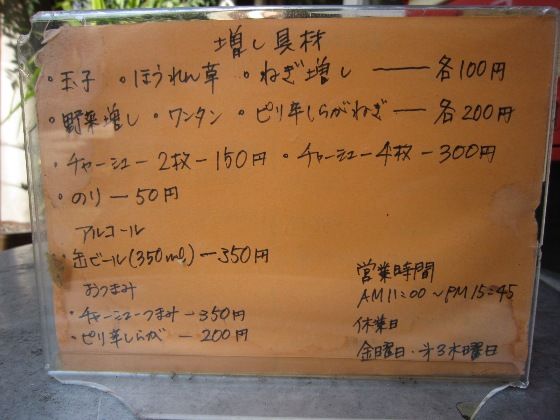 増し具材
・玉子 ・ほうれん草 ・ねぎ増し ── 各100円
・野菜増し ・ワンタン ・ピリ辛しらがねぎ ─ 各200円
・チャーシュー2枚─150円 ・チャーシュー4枚─300円
・のり─50円
アルコール
・缶ビール(350ml)─350円
おつまみ
・チャーシューつまみ─350円
・ピリ辛しらが ─200円
営業時間
AM11:00～PM15:45
休業日
金曜日・㐧3木曜日